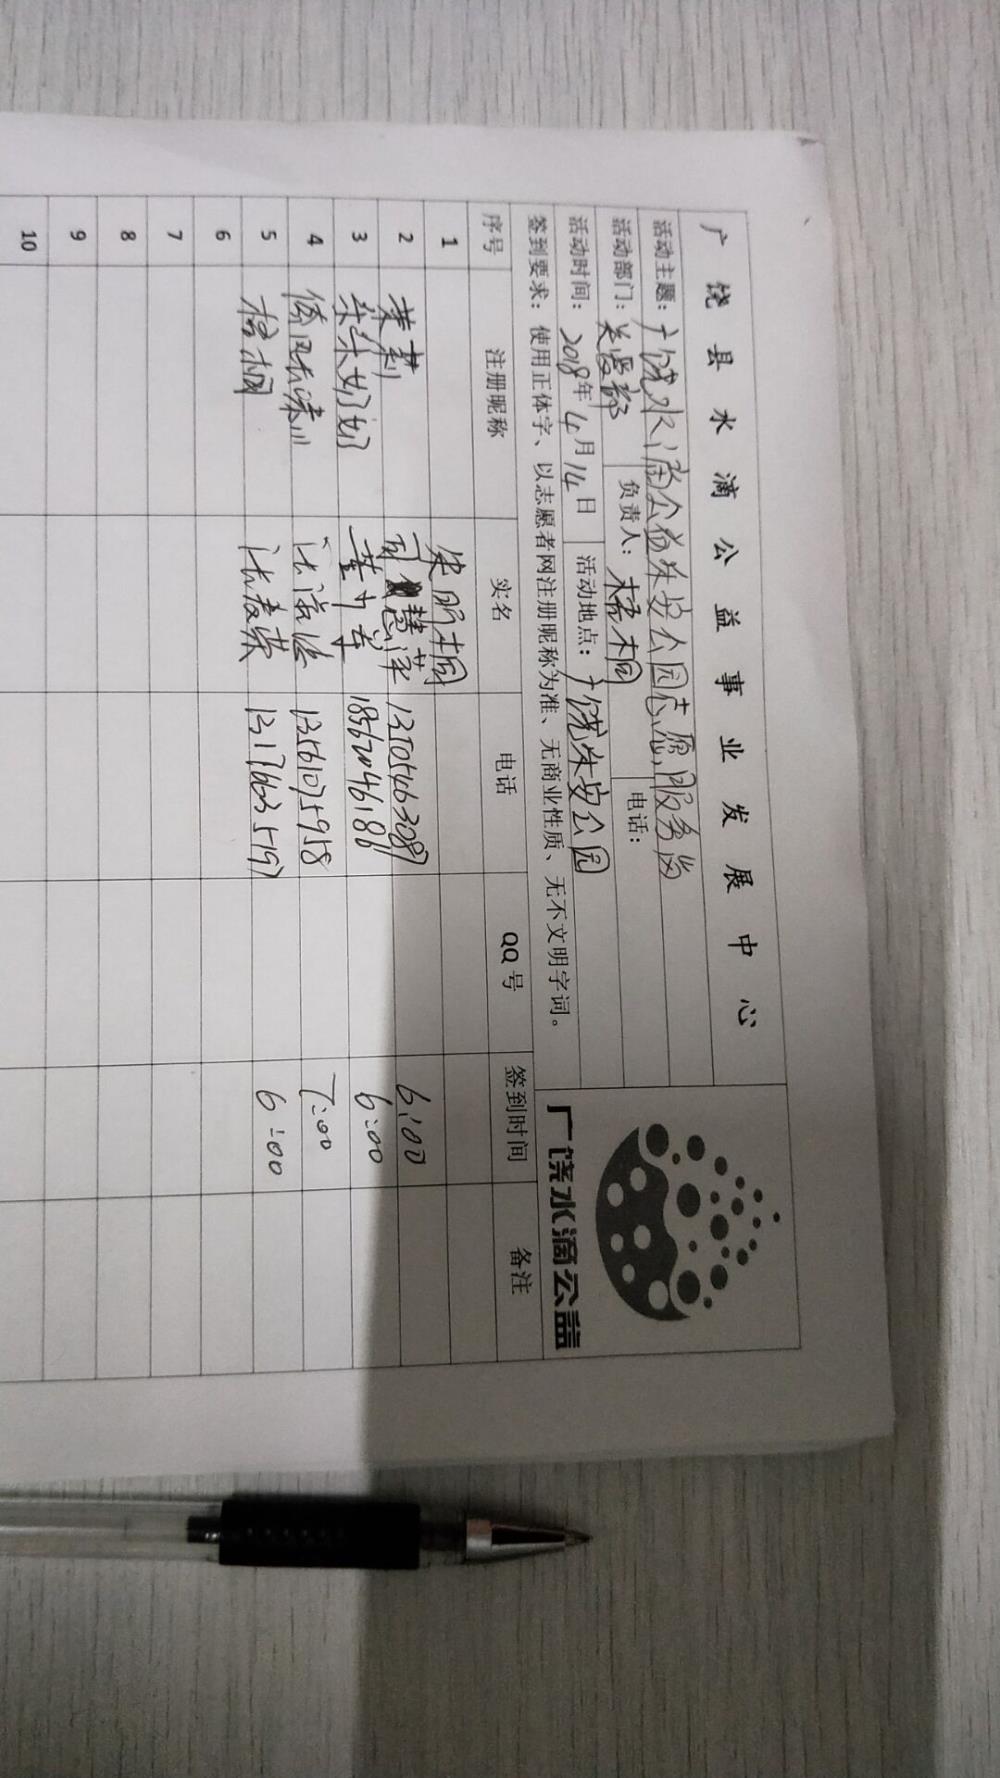 广饶县水滴公益事业发展中心
活动主题：广饶水滴公益乐安公园志愿服务岗
活动部门：关爱部 负责人：梧桐 电话：
活动时间：2018年4月14日 活动地点：广饶乐安公园
签到要求：使用正体字、以志愿者网注册昵称为准、无商业性质、无不文明字词。
广饶水滴公益
序号 注册昵称 实名 电话 QQ号 签到时间 备注
1
2 茉莉 13505463087 6:00
3 18562046186 6:00
4 13561075958 7:00
5 梧桐 13176635197 6:00
6
7
8
9
10